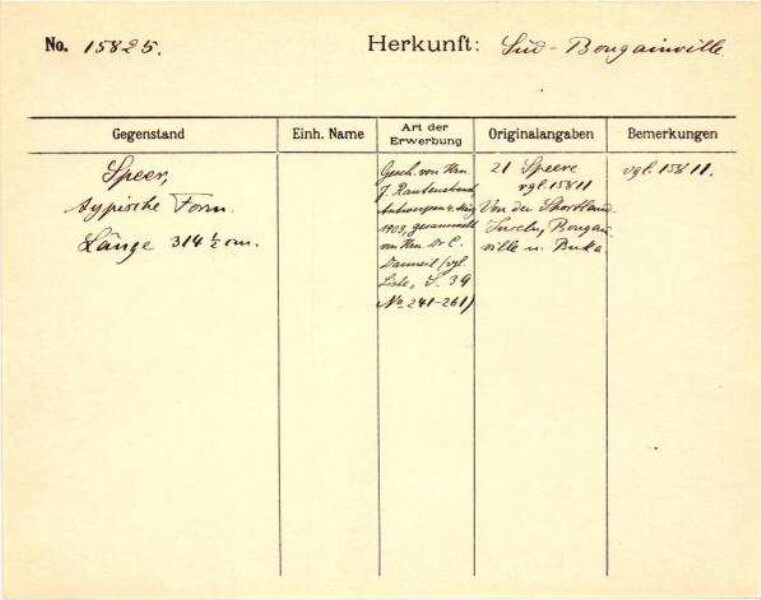 No. 15825. Herkunft: Süd-Bougainville
Gegenstand
Einh. Name
Art der
Erwerbung
Originalangaben
Bemerkungen
Speer,
typische Form.
Länge 314 ½ cm.
Gesch. von Hrn
J. Rautenstrauch
Antwerpen 4. März
1909, gesammelt
von Hrn Dr C.
Danneil (vgl.
Liste, S. 39
No 241-261)
21 Speere
vgl. 15811
Von der Shortland
Inseln, Bougain
ville u. Buka.
vgl. 15811.